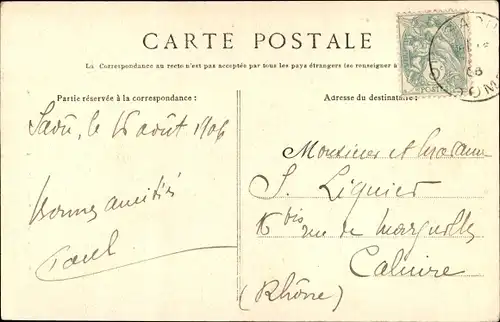 CARTE POSTALE
La Correspondance au recto n'est pas acceptée par tous les pays étrangers (se renseigner à
Partie réservée à la correspondance :
Adresse du destinataire :
le 16 août 1906
Bonnes amitiés
Paul
Monsieur et Madame
S. Liguier
16 bis rue de
Caluire
(Rhône)
POSTE